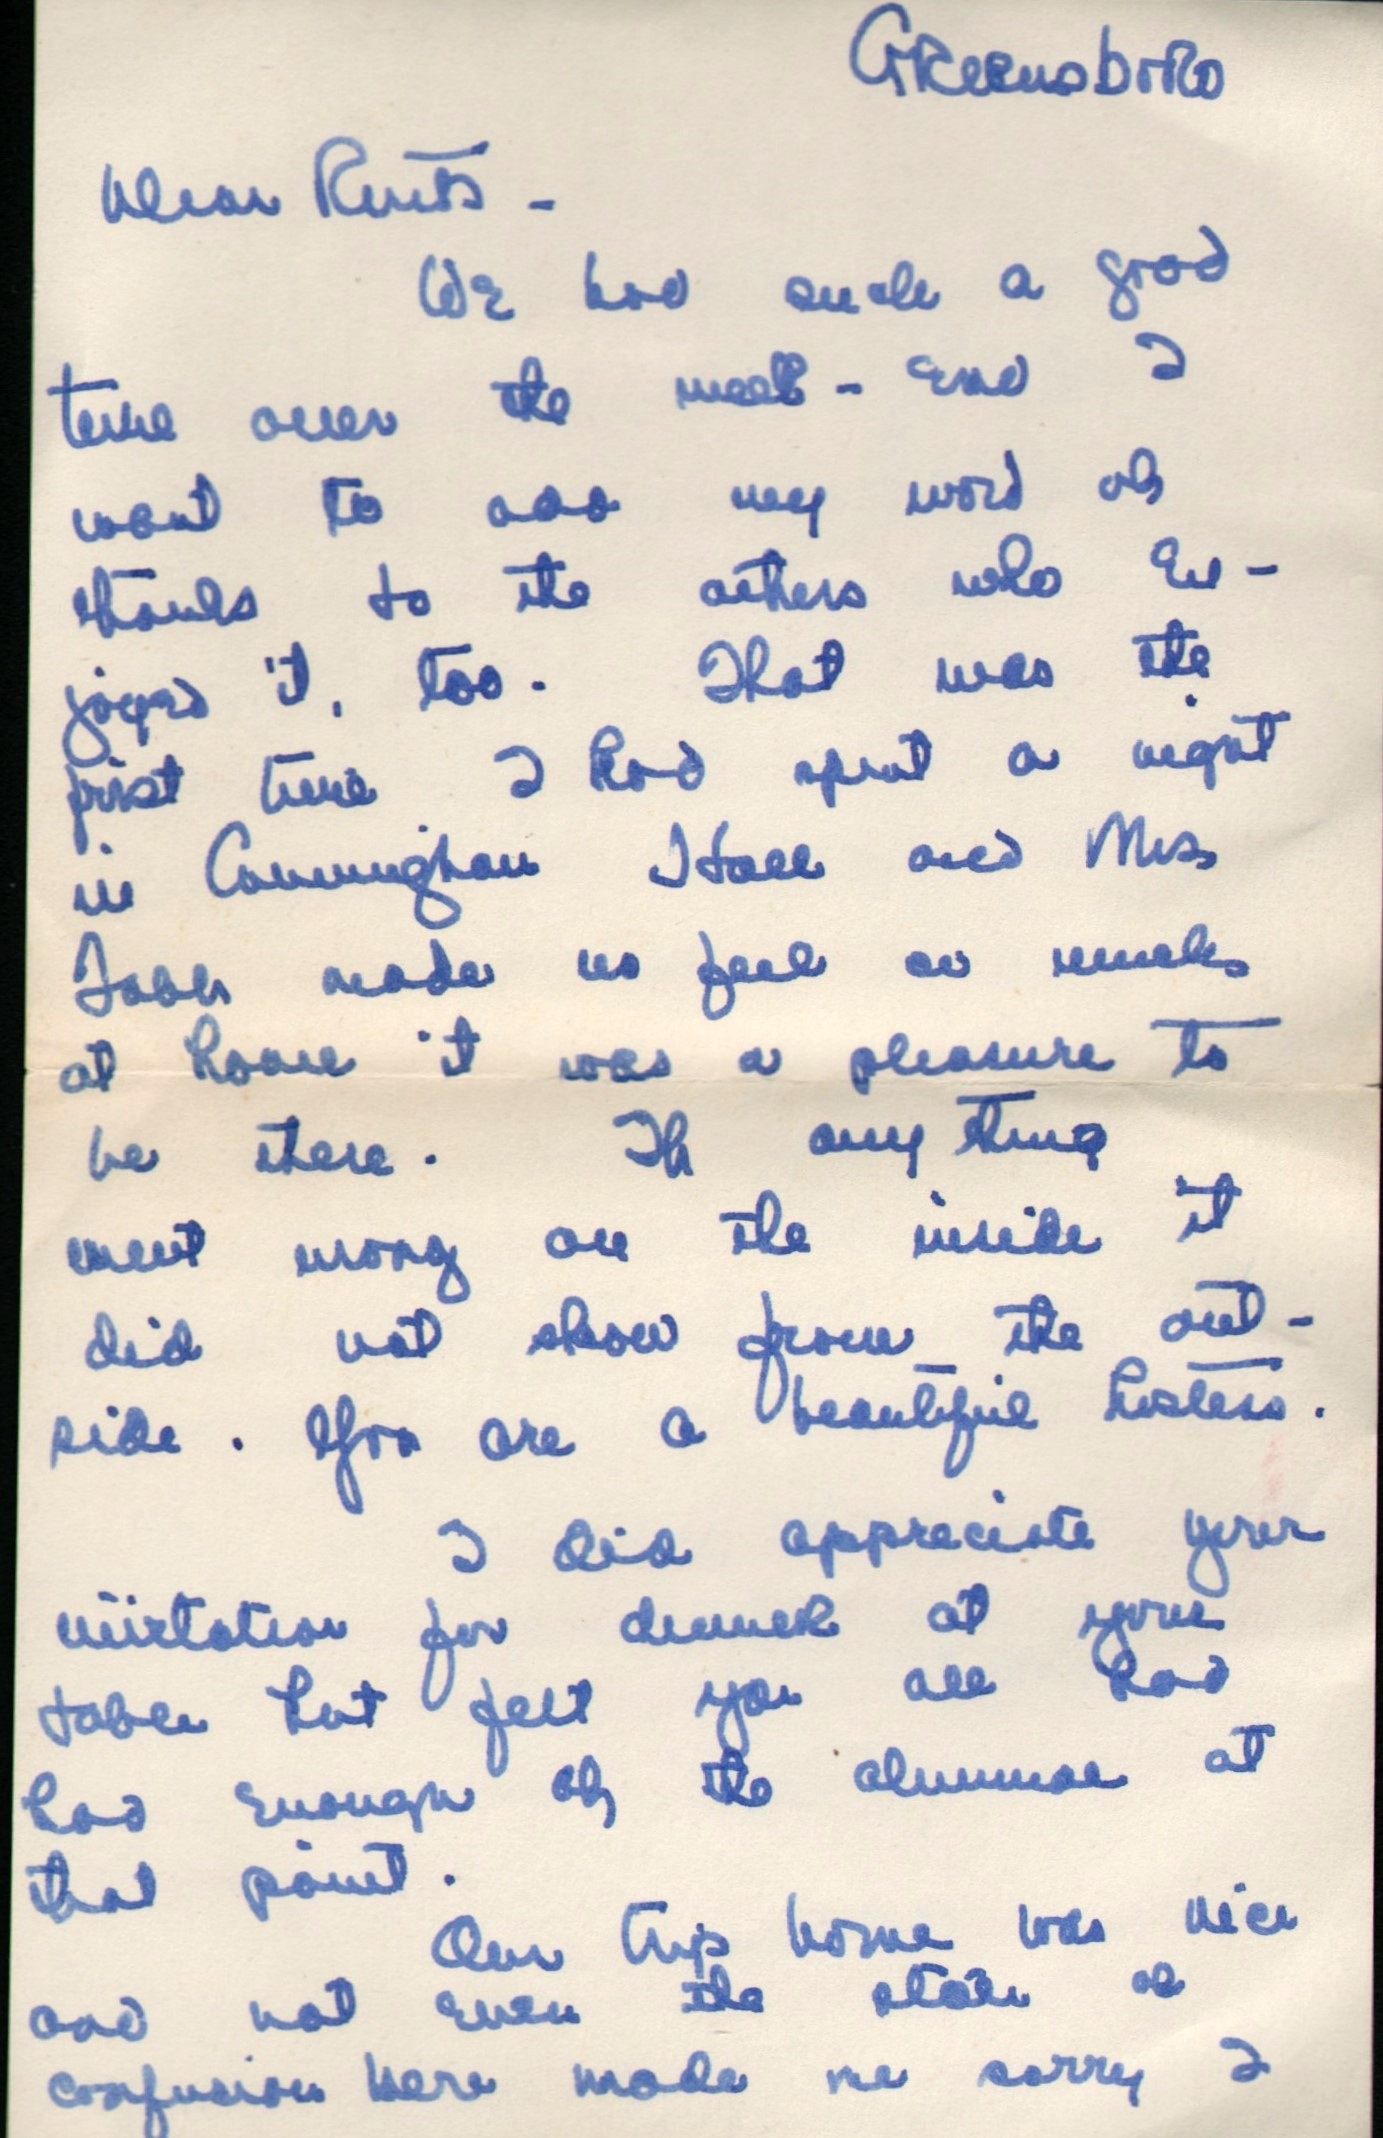 Greensboro
Dear Ruth -
We had such a good
time over the week-end I
want to add my word of
thanks to the others who en-
joyed it, too. That was the
first time I had spent a night
in Cunningham Hall and Mrs
made us feel so much
at home it was a pleasure to
be there. If anything
went wrong on the inside it
did not show from the out-
side. You are a beautiful hostess.
I did appreciate your
invitation for dinner at your
table but felt you all had
had enough of the alumnae at
that point.
Our trip home was nice
and not even the state of
confusion here made me sorry I